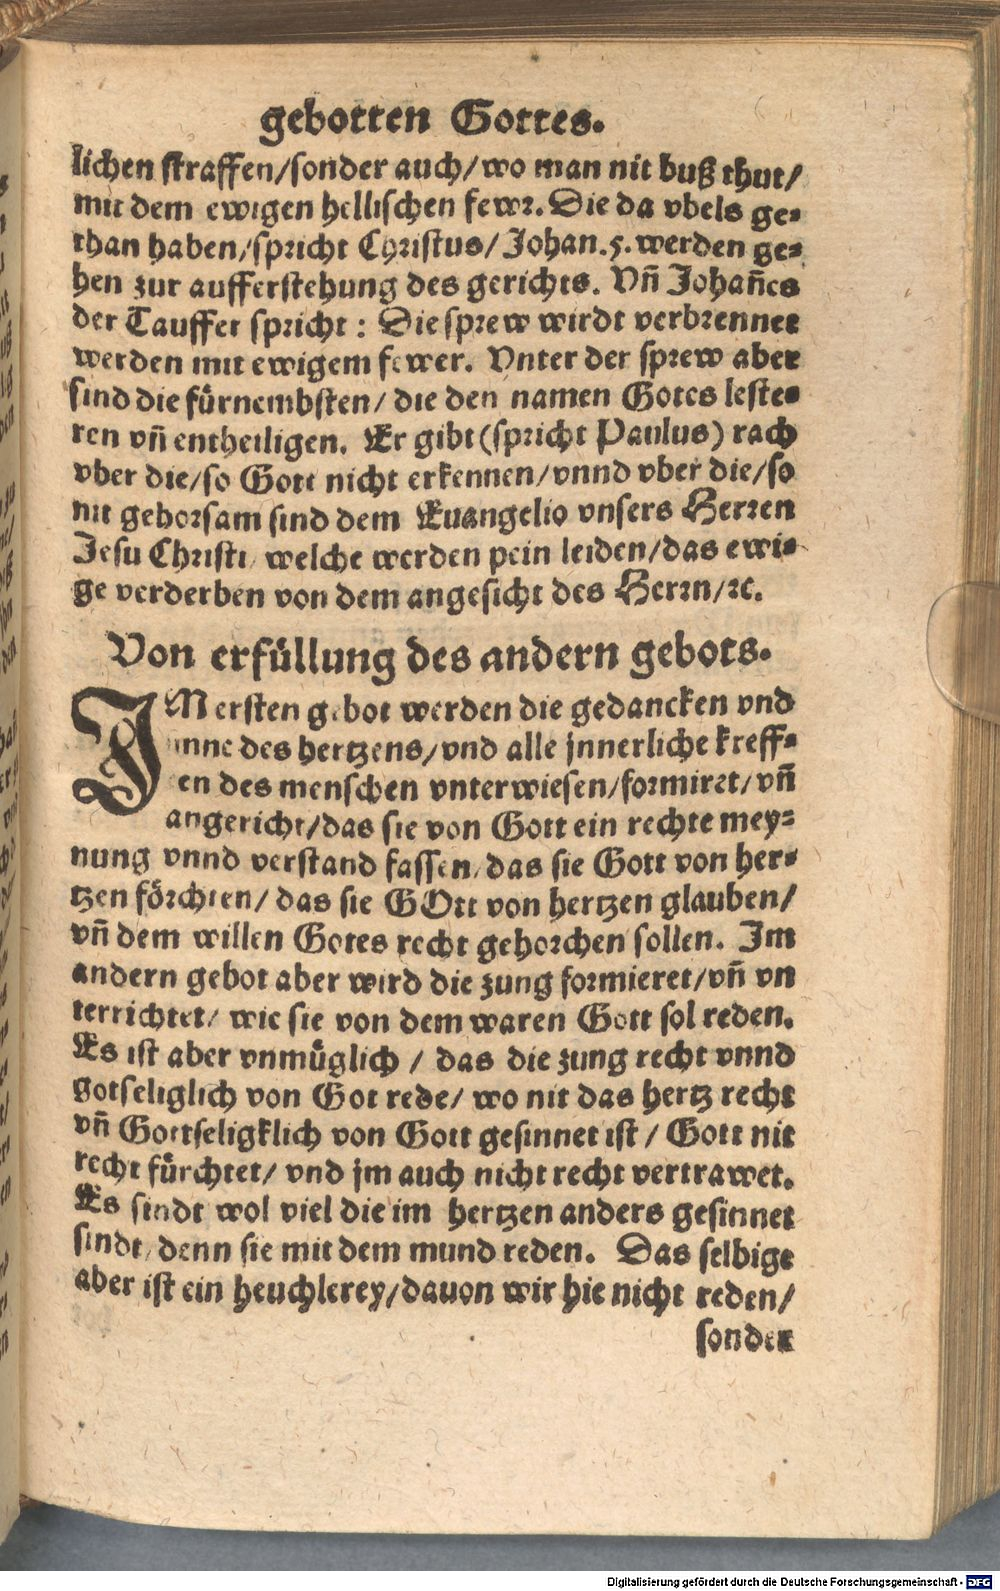 gebotten Gottes.
lichen straffen/sonder auch/wo man nit buß thut/
mit dem ewigen hellischen fewr. Die da vbels ge-
than haben/spricht Christus/Johan.5.werden ge-
hen zur aufferstehung des gerichts. Vñ Johañes
der Tauffer spricht: Die sprew wirdt verbrennet
werden mit ewigem fewer. Vnter der sprew aber
sind die fürnembsten/die den namen Gotes leste-
ren vñ entheiligen. Er gibt (spricht Paulus) rach
vber die/so Gott nicht erkennen/vnnd vber die/so
nit gehorsam sind dem Euangelio vnsers Herren
Jesu Christi/welche werden pein leiden/das ewi-
ge verderben von dem angesicht des Herrn/ꝛc.
Von erfüllung des andern gebots.
IM ersten gebot werden die gedancken vnd
sinne des hertzens/vnd alle jnnerliche kreff-
ten des menschen vnterwiesen/formiret/vñ
angericht/das sie von Gott ein rechte mey-
nung vnnd verstand fassen/das sie Gott von her-
tzen förchten/das sie GOtt von hertzen glauben/
vñ dem willen Gotes recht gehorchen sollen. Im
andern gebot aber wird die zung formieret/vñ vn
terrichtet/wie sie von dem waren Gott sol reden.
Es ist aber vnmüglich/das die zung recht vnnd
gotseliglich von Got rede/wo nit das hertz recht
vñ Gottseligklich von Gott gesinnet ist/Gott nit
recht fürchtet/vnd jm auch nicht recht vertrawet.
Es sindt wol viel die im hertzen anders gesinnet
sindt/denn sie mit dem mund reden. Das selbige
aber ist ein heuchlerey/dauon wir hie nicht reden/
sonder
Digitalisierung gefördert durch die Deutsche Forschungsgemeinschaft - DFG